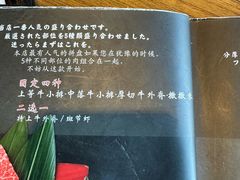 当店一番人気の盛り合わせです。
厳選された部位を5種類盛り合わせました。
迷ったらまずはこれ。
本店最有人气的拼盘如果您在犹豫的时候，
5种不同部位的肉组合在一起。
不妨从这款开始。
固定四种
上等牛小排·中落牛小排·厚切牛外脊·
二选一
特上牛外脊/斑节虾